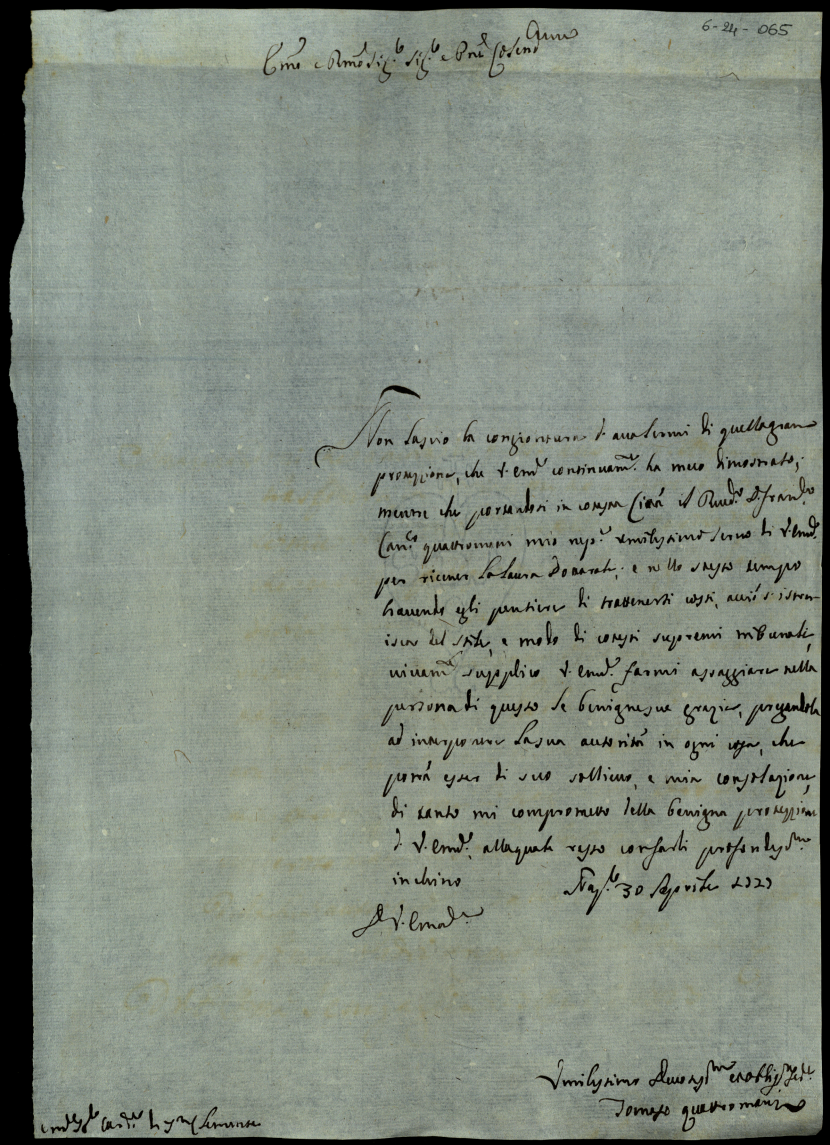 6-24-065
Emo e Rmo Sig.r Sig.r e Pne
Non lascio la congiontura d'avalermi di quella gran
protezzione, che V. Em.a continuam.te ha meco dimostrato;
mentre che portandosi in cotesta Città il Rmd.o D. Fran.co
Can.co quattromani mio nep.e umilissimo servo di V. Em.a
per ricever la laura Dottorale; e nello stesso tempo
havendo egli pensiere di trattenersi costì, acciò s'istru-
isca del stile, e modo di cotesti supremi tribunali,
vivam.te supplico V. Em.a farmi assaggiare nella
persona di questo le benigne sue grazie, pregandola
ad interporre la sua autorità in ogni cosa, che
potrà esser di suo sollievo, e mia consolazione,
di tanto mi comprometto della benigna protezzione
di V. Em.a, alla quale resto con farli profondiss.mo
inchino
30 Aprile
D. V. Em.a
Umilissimo Devotiss.mo et obblig.mo
Tomaso quattromani